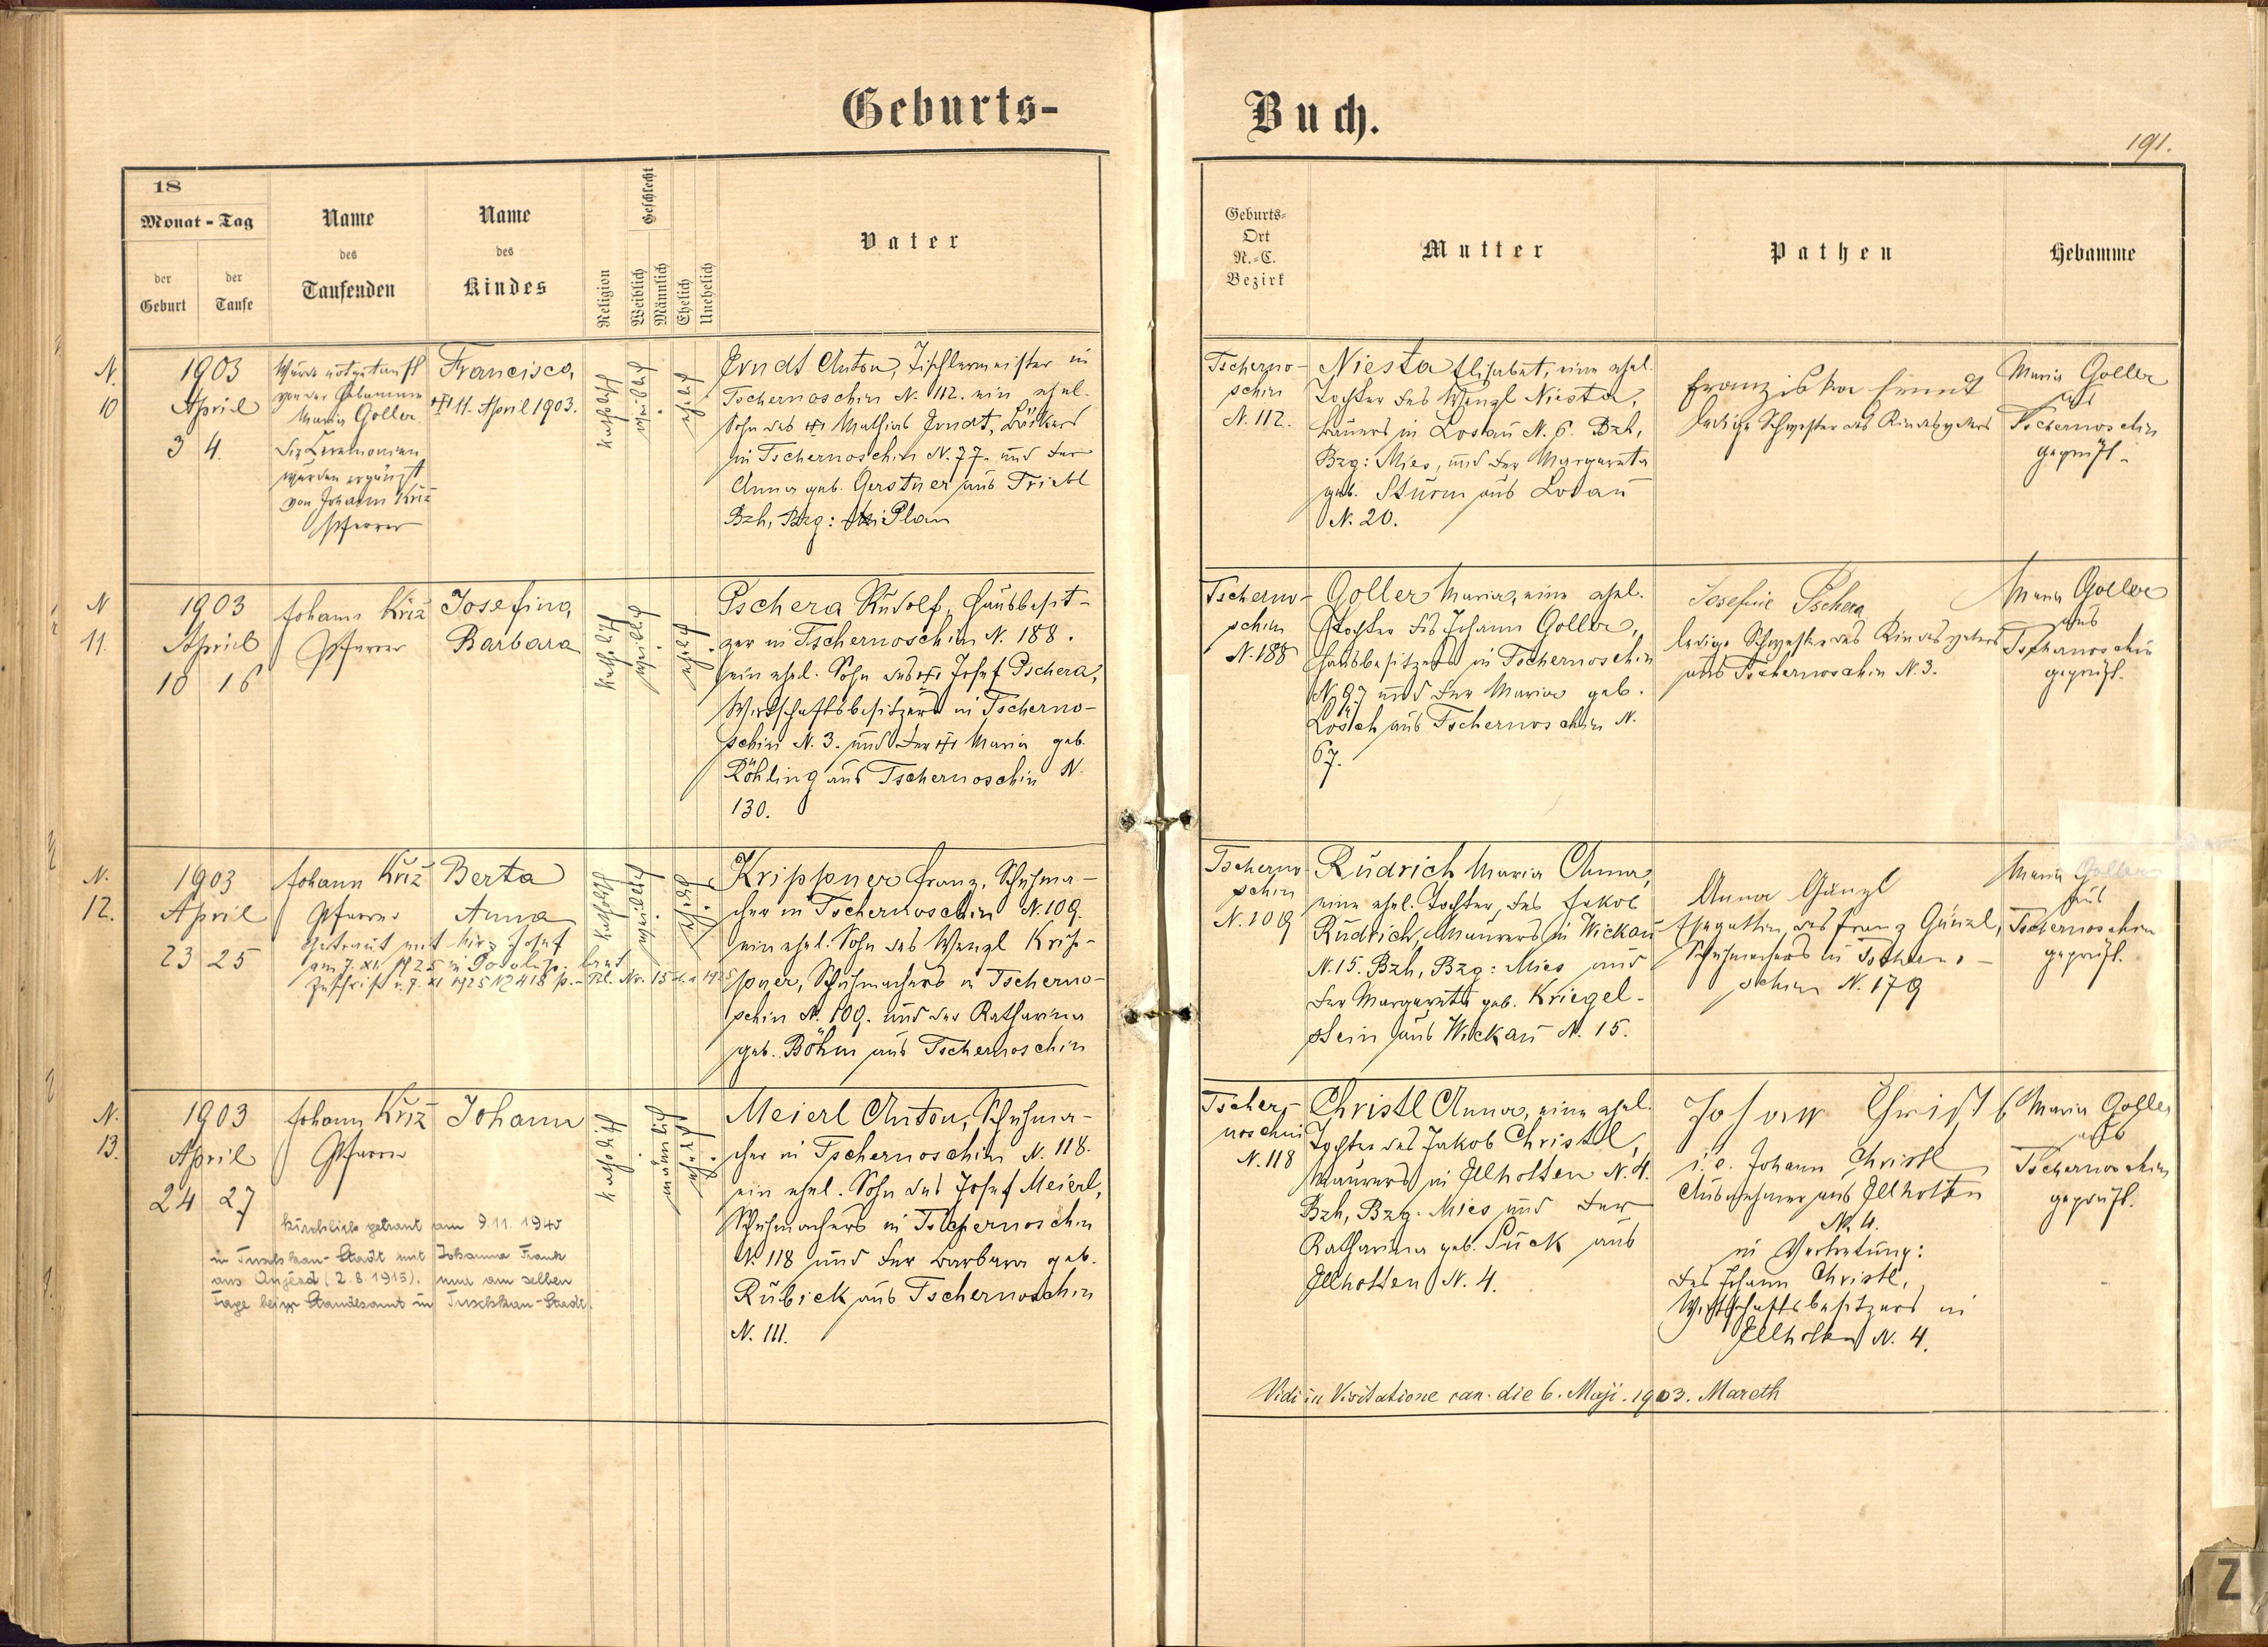 Geburts-
Buch.
191.
18
Monat - Tag
der Geburt
der Taufe
Name des Taufenden
Name des Kindes
Religion
Geschlecht
Weiblich
Männlich
Ehelich
Unehelich
Vater
Geburts-
Ort
N.-C.
Bezirk
Mutter
Pathen
Hebamme
N.
10
1903
April
3 4.
Wurde notgetauft
von der Hebamme
Maria Goller.
Die Zeremonien
wurden ergänzt
von Johann Kříž
Pfarrer
Francisca,
††† 11. April 1903.
katholisch
weiblich
ehelich
Erndt Anton, Tischlermeister in
Tschernoschin N. 112. ein ehel.
Sohn des ††† Mathias Erndt, Bäckers
in Tschernoschin N. 77. und der
Anna geb. Gerstner aus Triebl
Bzh, Bzg: Plan
Tscherno-
schin
N. 112.
Niesta Elisabet, eine ehel.
Tochter des Wenzl Niesta,
Bauers in Losau N. 6. Bzh,
Bzg: Mies, und der Margareta
geb. Sturm aus Losau
N. 20.
Franziska Erndt
ledige Schwester des Kindesvaters
Maria Goller
aus
Tschernoschin
geprüft.
N
11.
1903
April
10 16
Johann Kříž
Pfarrer
Josefina
Barbara
katholisch
weiblich
ehelich
Pschera Rudolf, Hausbesit-
zer in Tschernoschin N. 188.
ein ehel. Sohn des ††† Josef Pschera,
Wirtschaftsbesitzers in Tscherno-
schin N. 3. und der ††† Maria geb.
Röhling aus Tschernoschin N.
130.
Tscherno-
schin
N. 188
Goller Maria, eine ehel.
Tochter des Johann Goller,
Hausbesitzers in Tschernoschin
N. 97 und der Maria geb.
Lösch aus Tschernoschin N.
67.
Josefine Pschera
ledige Schwester des Kindesvaters
aus Tschernoschin N. 3.
Maria Goller
aus
Tschernoschin
geprüft.
N.
12.
1903
April
23 25
Johann Kříž
Pfarrer
Berta
Anna
Getraut mit Josef
am 7. XI. 1925 in laut
Zuschrift v. 7. XI 1925 N 418 p. - Bl. Nr. 15 d. a 1925
katholisch
weiblich
ehelich
Krippner Franz, Schuhma-
cher in Tschernoschin N. 109.
ein ehel. Sohn des Wenzl Krip-
pner, Schuhmachers in Tscherno-
schin N. 109. und der Katharina
geb. Böhm aus Tschernoschin
Tscherno
schin
N. 109
Rudrich Maria Anna,
eine ehel. Tochter des Jakob
Rudrich, Maurers in Wickau
N. 15. Bzh, Bzg: Mies und
der Margareta geb. Kriegel-
stein aus Wickau N. 15.
Anna Günzl
Ehegattin des Franz Günzl,
Schuhmachers in Tscherno-
schin N. 179
Maria Goller
aus
Tschernoschin
geprüft.
N.
13.
1903
April
24 27
Johann Kříž
Pfarrer
Johann
Kirchlich getraut am 9.11.1940
in Tuschkau-Stadt mit Johanna Frank
aus Anjezd (2.8.1915). und am selben
Tage beim Standesamt in Tuschkau-Stadt.
katholisch
männlich
ehelich
Meierl Anton, Schuhma-
cher in Tschernoschin N. 118.
ein ehel. Sohn des Josef Meierl,
Schuhmachers in Tschernoschin
N. 118 und der Barbara geb.
Rubick aus Tschernoschin
N. 111.
Tscher-
noschin
N. 118
Christl Anna, eine ehel.
Tochter des Jakob Christl,
Maurers in Ellhotten N. 4.
Bzh, Bzg. Mies und der
Katharina geb. Suck aus
Ellhotten N. 4.
Johann Christl
i. e. Johann Christl
Ausnehmer aus Ellhotten
N. 4.
in Vertretung:
des Johann Christl,
Wirtschaftsbesitzers in
Ellhotten N. 4.
Maria Goller
aus
Tschernoschin
geprüft.
Vidi in Visitatione can. die 6. Maji. 1903. Mareth
Z